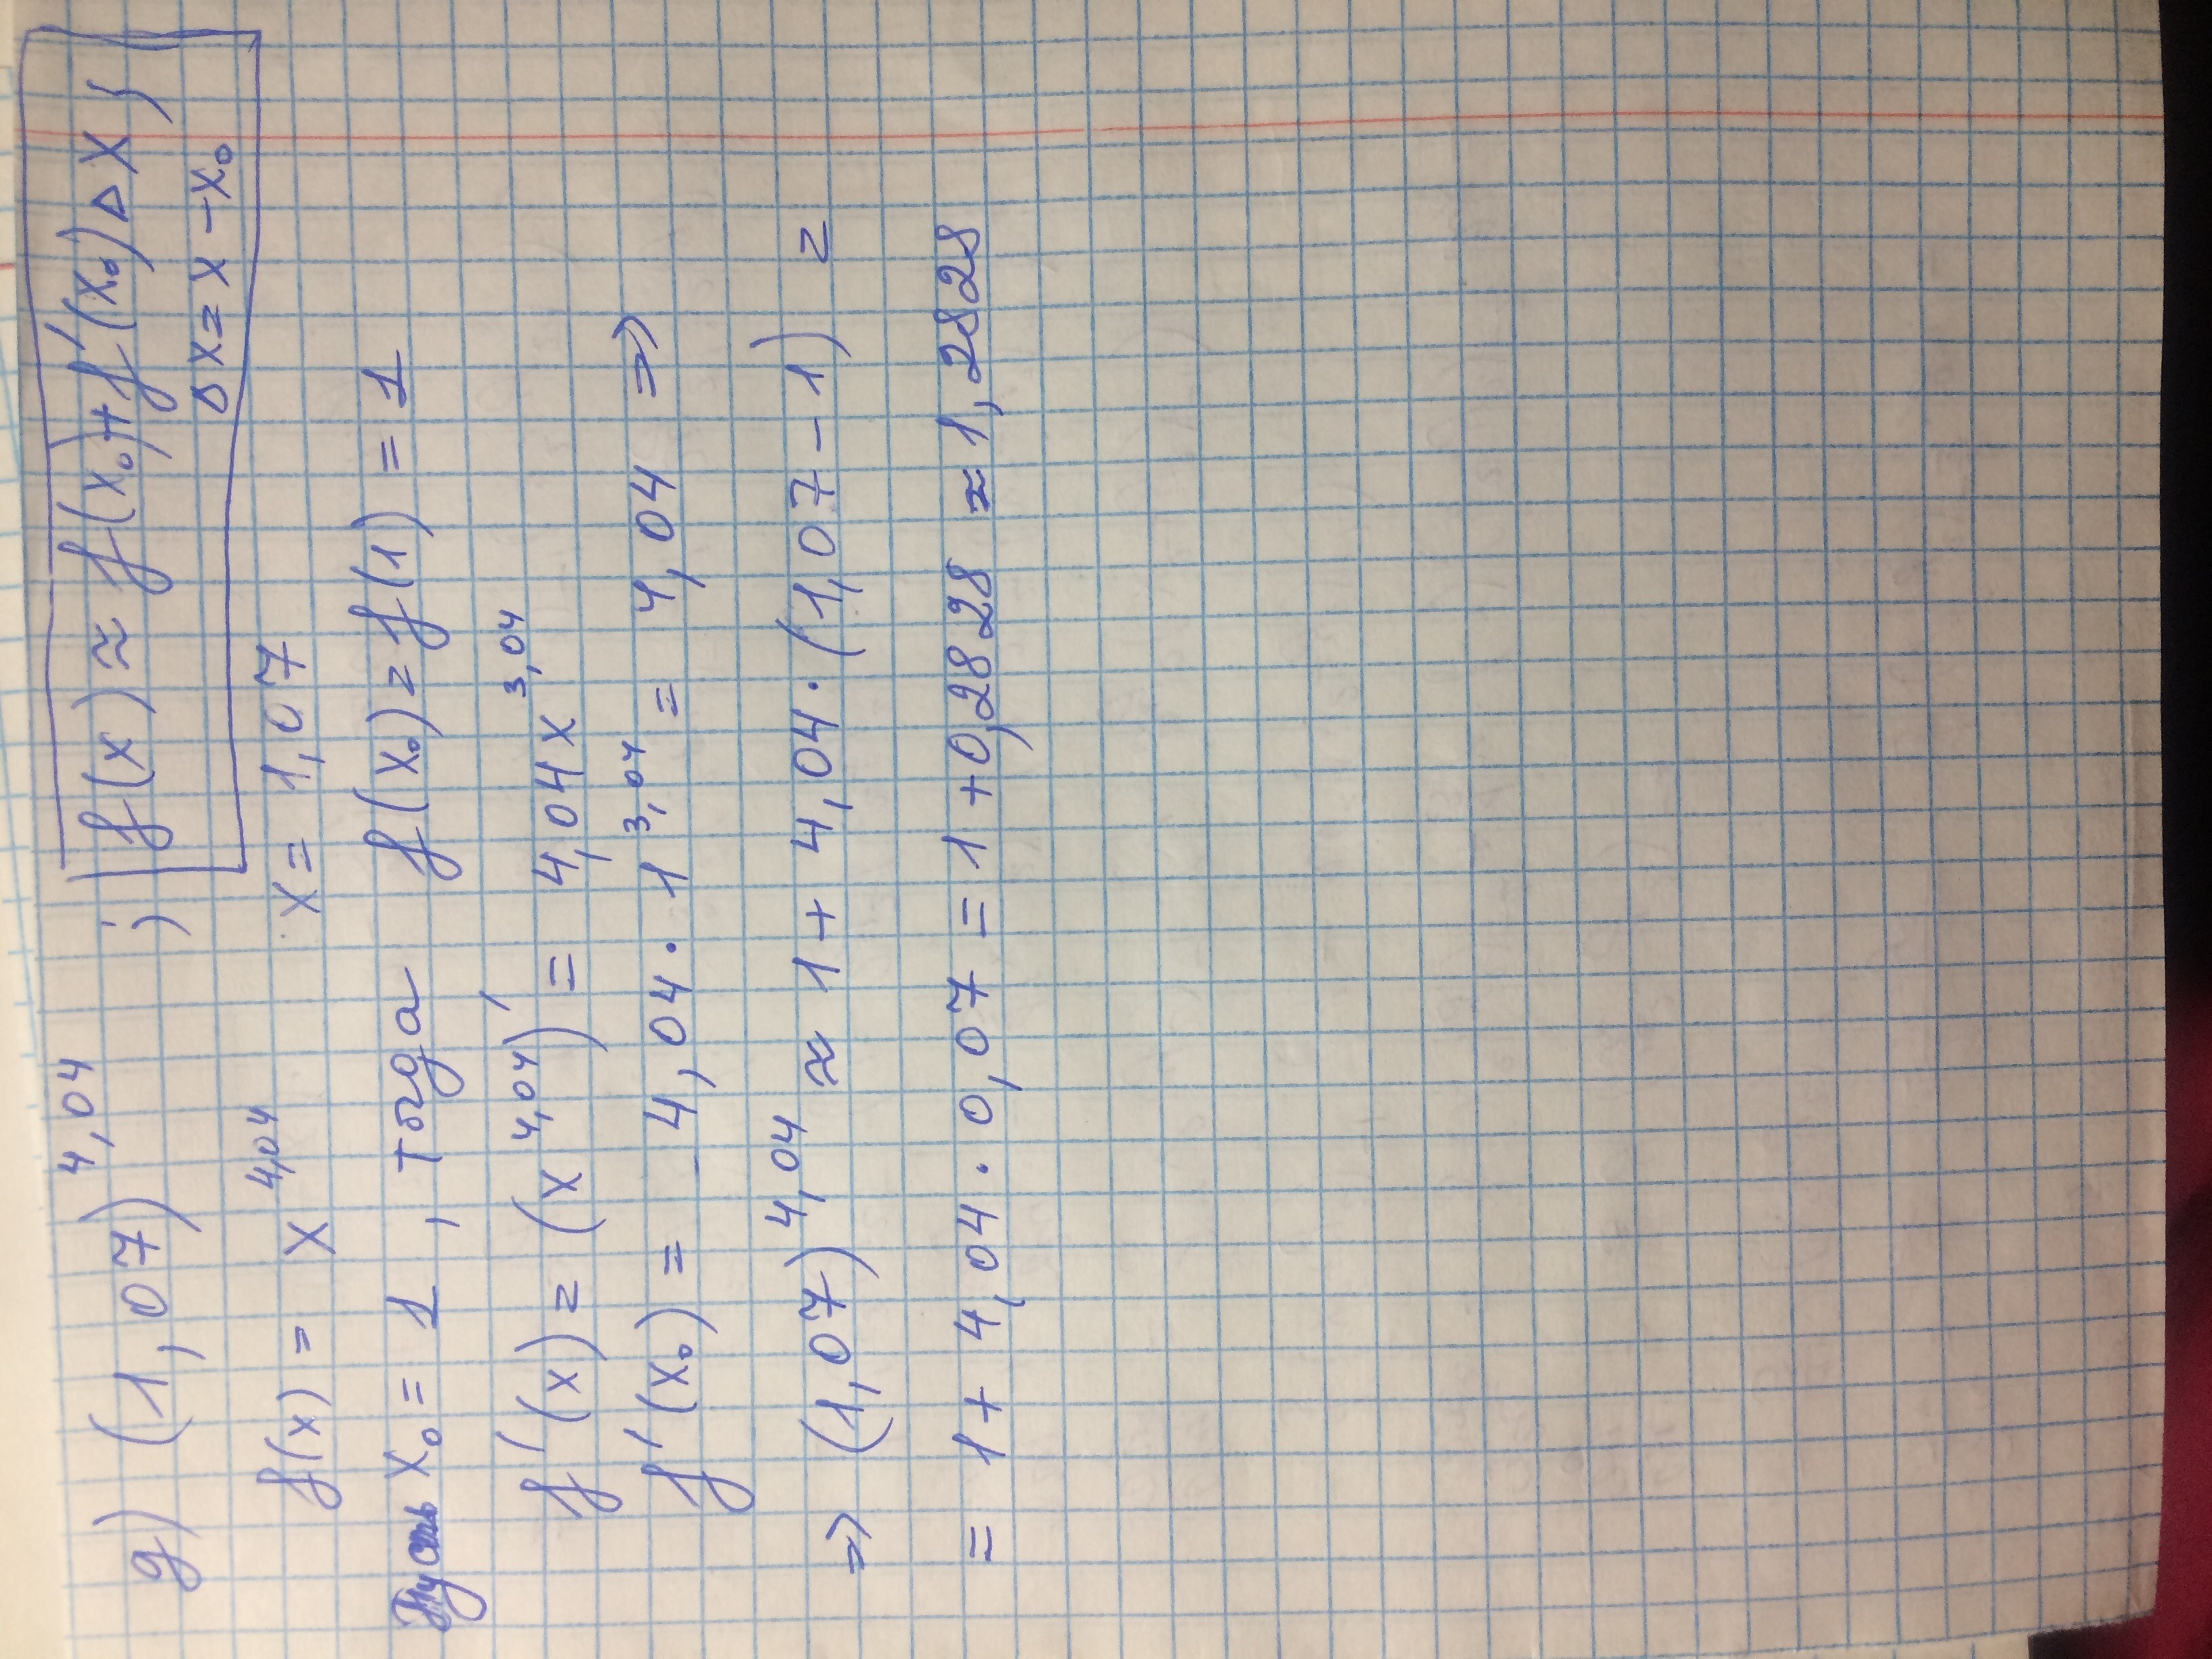 д) (1,07)^4,04 ; f(x) ≈ f(x₀) + f'(x₀) Δx ;
Δx = x − x₀
f(x) = x^4,04 x = 1,07
Пусть x₀ = 1, тогда f(x₀) = f(1) = 1
f'(x) = (x^4,04)' = 4,04x^3,04
f'(x₀) = 4,04 · 1^3,04 = 4,04 ⇒
⇒ (1,07)^4,04 ≈ 1 + 4,04 · (1,07 − 1) =
= 1 + 4,04 · 0,07 = 1 + 0,2828 ≈ 1,2828